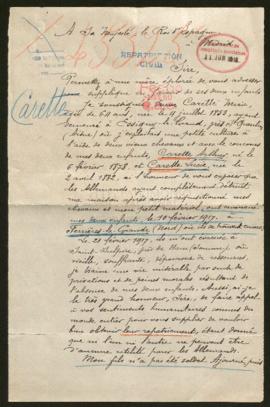 A Sa Majesté le Roi d'Espagne
Madrid
11 JUN 1918
RÉPATRIATION
Civils
Sire,
Carette
Permettez à une mère éplorée de vous adresser
une supplique en faveur de ses deux enfants
Je soussignée Veuve Carette
âgée de 64 ans, née le 4 juillet 1853, ayant
demeuré à le Grand, près
(Aisne) où j'exploitais une petite culture à
l'aide de deux vieux chevaux et avec le concours
de mes deux enfants, Carette Arthur né le
6 février 1878 et Carette Lucie, née le
2 avril 1882, a l'honneur de vous exposer que
les Allemands ayant complètement détruit
ma maison après avoir réquisitionné mes
chevaux et mon petit matériel, ont emmené
mes deux enfants, le 10 février 1917, à
Ferrière la Grande (Nord) où ils se trouvent encore.
Le 21 février 1917, ils m'ont envoyée à
Saint où
vieille, souffrante, dépourvue de ressources,
je traîne une vie misérable par suite de
privations et de peines morales résultant de
l'absence de mes deux enfants. Aussi, ai-je
le très grand honneur, Sire, de faire appel
à vos sentiments humanitaires connus du
monde entier pour vous supplier de vouloir
bien obtenir leur rapatriement, étant donné
que ni l'un ni l'autre ne peuvent être
d'aucune utilité pour les Allemands.
Mon fils n'a pas été soldat. Ajourné puis